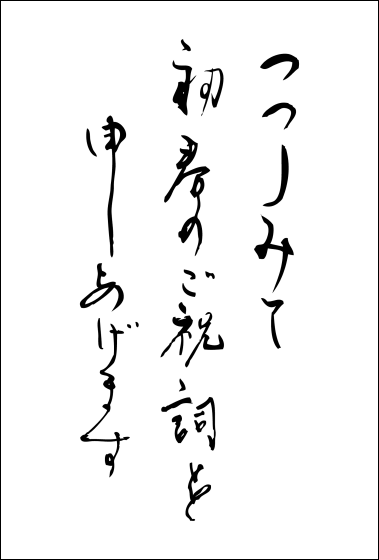 つつしみて
初春のご祝詞を
申しあげます